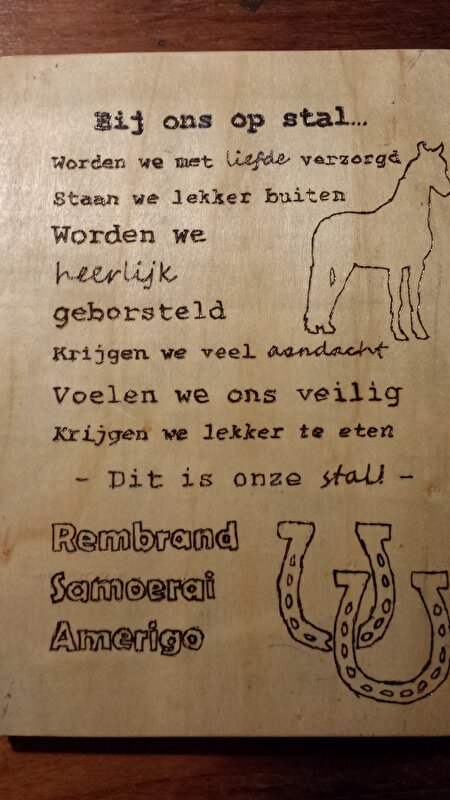 Bij ons op stal...
Worden we met liefde verzorgd
Staan we lekker buiten
Worden we
heerlijk
geborsteld
Krijgen we veel aandacht
Voelen we ons veilig
Krijgen we lekker te eten
- Dit is onze stal! -
Rembrand
Samoerai
Amerigo